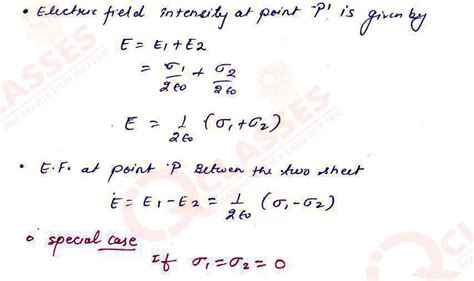 • Electric field intensity at point 'P' is given by
E = E₁ + E₂
= σ₁/2ε₀ + σ₂/2ε₀
E = 1/2ε₀ (σ₁+σ₂)
• E.F. at point 'P Between the two sheet
E = E₁ - E₂ = 1/2ε₀ (σ₁-σ₂)
• special case
If σ₁=σ₂=0
CLASSES
CLASSES